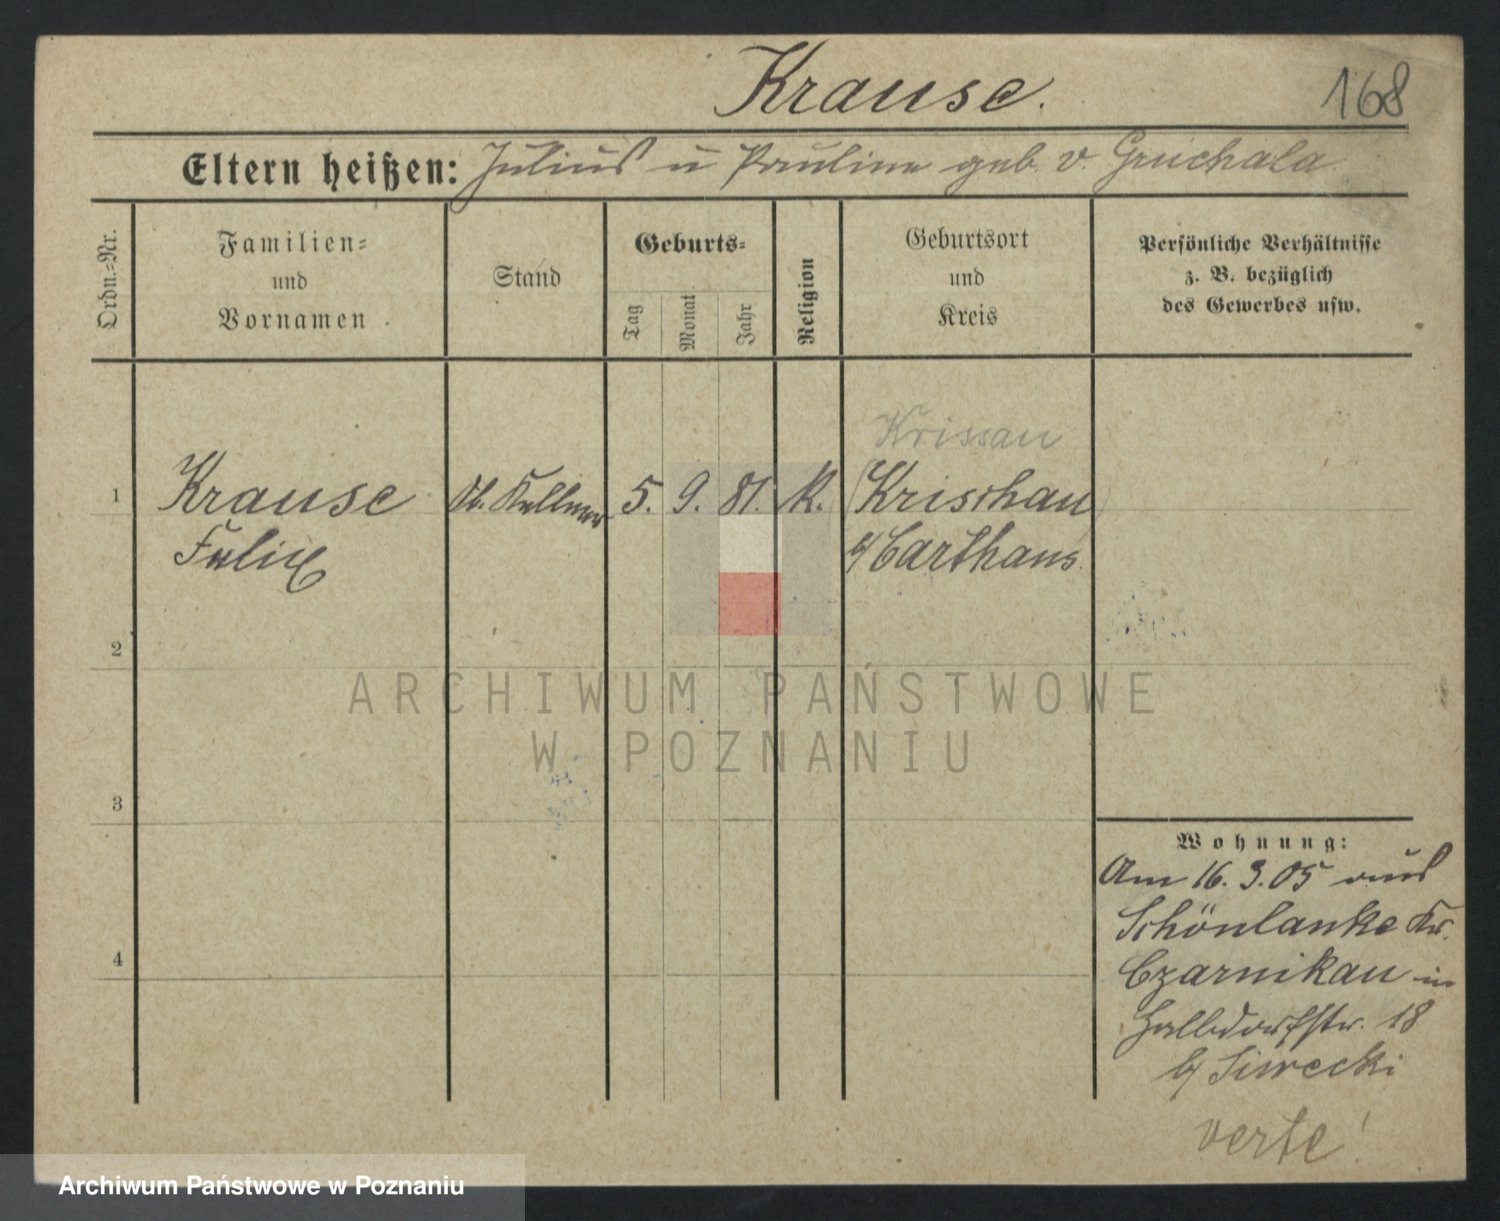 Krause.
168
Eltern heißen: Julius u Pauline geb. v. Gruchala
Ordn.=Nr.
Familien=
und
Vornamen
Stand
Geburts=
Tag
Monat
Jahr
Religion
Geburtsort
und
Kreis
Persönliche Verhältnisse
z. B. bezüglich
des Gewerbes usw.
Krissau
1 Krause Kellner 5. 9. 81. K. (Krischau)
Felix Carthaus
2
ARCHIWUM PAŃSTWOWE
W POZNANIU
3
Wohnung:
Am 16. 3. 05 aus
Schönlanke Kr.
4
Czarnikau in
Halbdorfstr. 18
b/ Siwecki
verte!
Archiwum Państwowe w Poznaniu